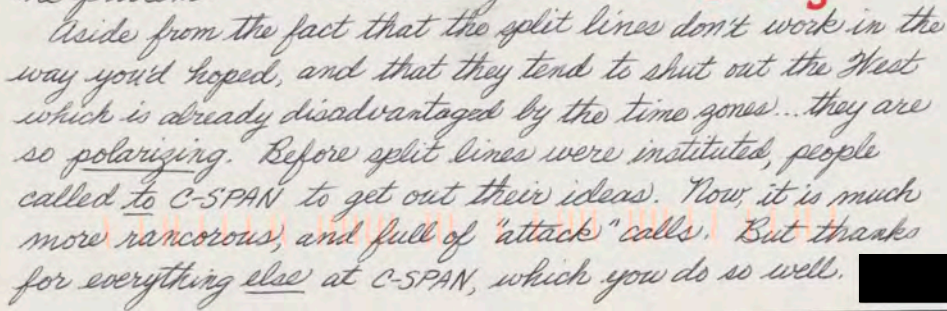 Aside from the fact that the split lines don't work in the
way you'd hoped, and that they tend to shut out the West
which is already disadvantaged by the time zones...they are
so polarizing. Before split lines were instituted, people
called to C-SPAN to get out their ideas. Now, it is much
more rancorous, and full of "attack" calls. But thanks
for everything else at C-SPAN, which you do so well.